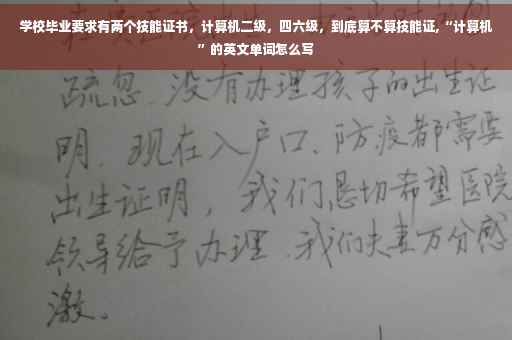 学校毕业要求有两个技能证书，计算机二级，四六级，到底算不算技能证,“计算机
”的英文单词怎么写
疏忽.没有办理孩子的出生证
明.现在入户口、防疫都需要
出生证明，我们恳切希望医院
领导给予办理.我们夫妻万分感
激.